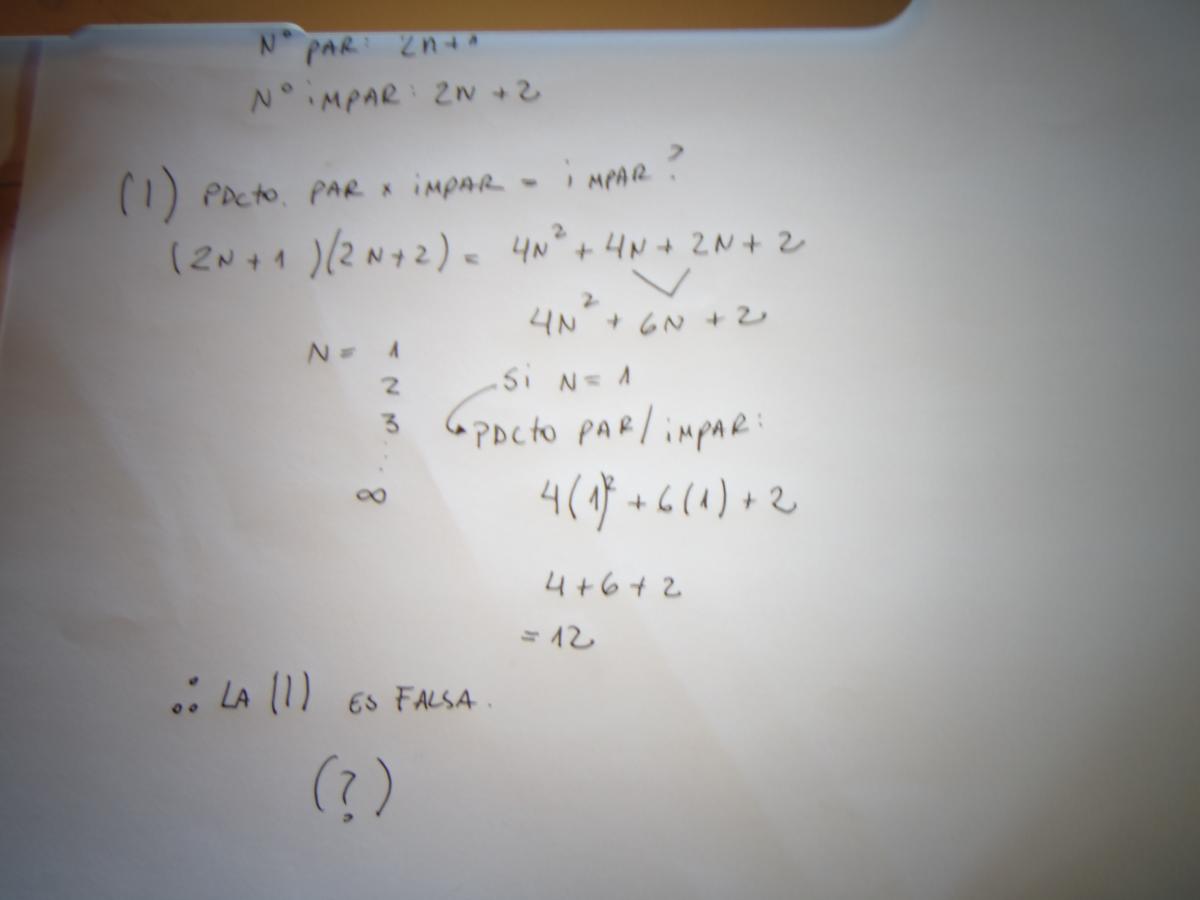 Nº PAR: 2N+1
Nº iMPAR: 2N + 2
(1) PDcto. PAR x iMPAR = iMPAR?
(2N + 1)(2N+2) = 4N² + 4N + 2N + 2
4N² + 6N + 2
N = 1
2
3
⋮
∞
Si N = 1
PDcto PAR/iMPAR:
4(1)² + 6(1) + 2
4 + 6 + 2
= 12
∴ LA (1) ES FALSA.
(?)